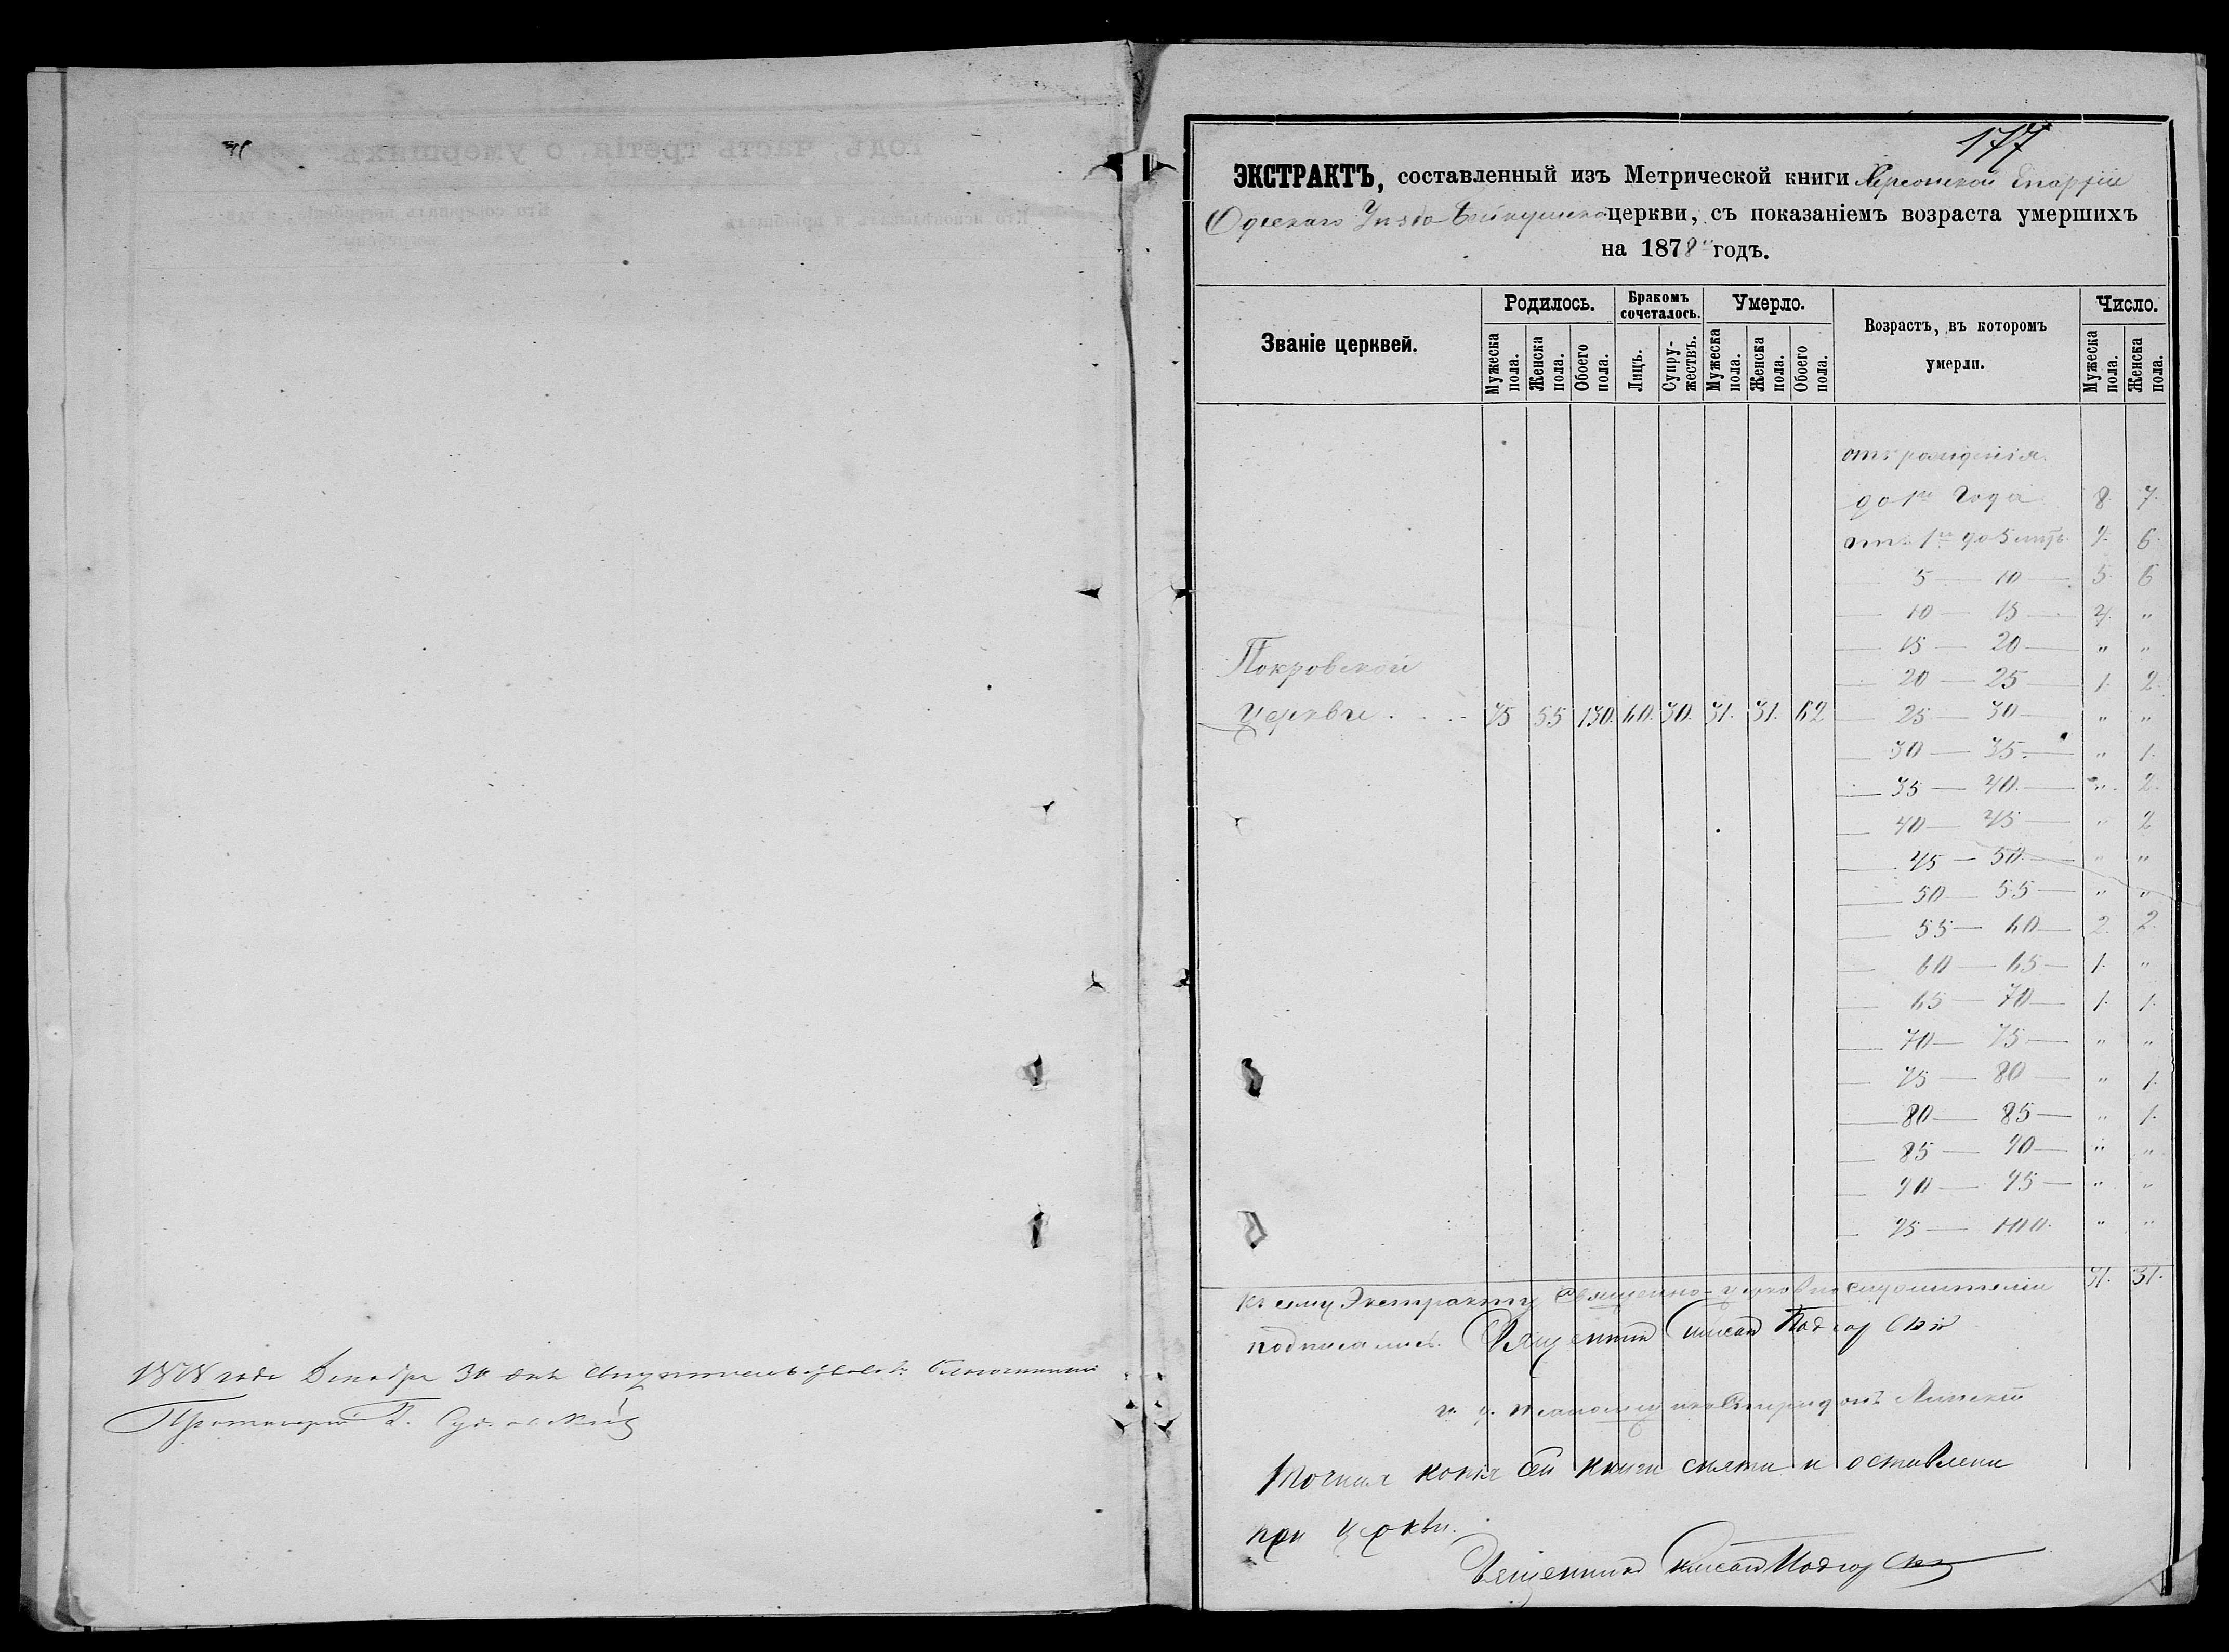 1878 года Декабря 30 дня свидетельствовалъ Благочинный
Протоіерей
177
ЭКСТРАКТЪ, составленный изъ Метрической книги Херсонской Епархіи
Одескаго Уѣзда церкви, съ показаніемъ возраста умершихъ
на 1878 годъ.
Званіе церквей.
Родилось.
Бракомъ сочеталось.
Умерло.
Возрастъ, въ которомъ умерли.
Число.
Мужеска пола. Женска пола. Обоего пола. Лицъ. Супружествъ. Мужеска пола. Женска пола. Обоего пола. Мужеска пола. Женска пола.
отъ рожденія
до 1го года 8. 7.
отъ 1го до 5 лѣтъ 9. 6.
5 — 10 — 5. 6
10 — 15 — 4. "
15 — 20 — " "
Покровской
20 — 25 — 1. 2.
Церкви . . . 75 55 130. 60. 30. 31. 31. 62
25 — 30 — " "
30 — 35. — " 1.
35 — 40. — " 2.
40 — 45 — " 2
45 — 50. — " "
50 — 55 — " "
55 — 60 — 2. 2.
60 — 65 — 1. "
65 — 70 — 1. 1.
70 — 75 — " "
75 — 80 — " 1.
80 — 85 — " 1.
85 — 90 — " "
90 — 95 — " "
95 — 100. " "
31. 31.
Къ сему Экстракту Священно-церковнослужители
подписались. Священникъ Подгорскій
и. д. псаломщика Спиридонъ Липскій
Точная копія сей книги снята и оставлена
при церкви.
Священникъ Подгорскій